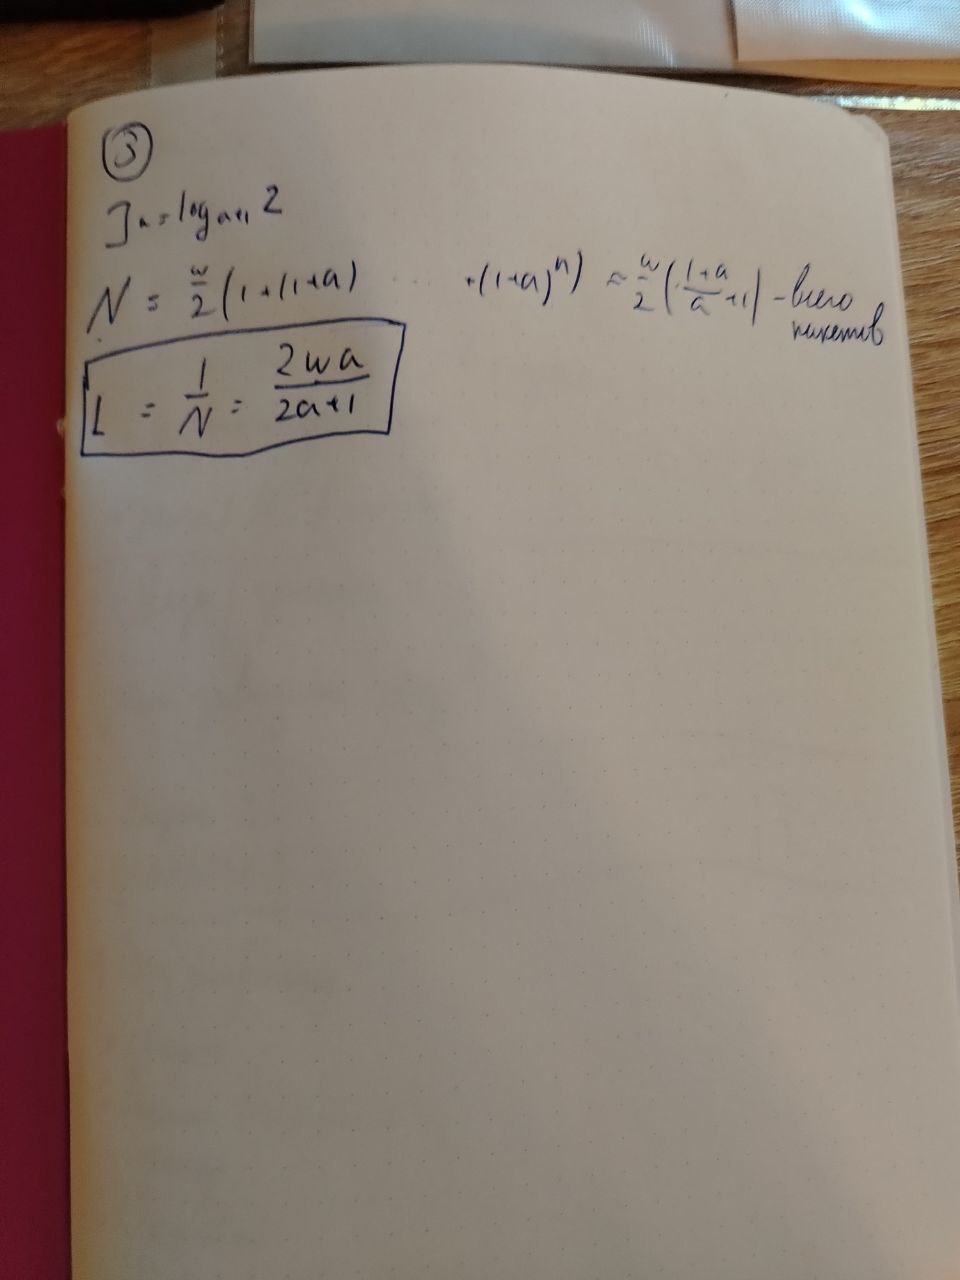 ③
Jn = log_{a+1} 2
N = w/2 (1+(1+a) .... +(1+a)^n) ≈ w/2 ((1+a)/a +1) - всего
пакетов
L = 1/N = 2wa/(2a+1)